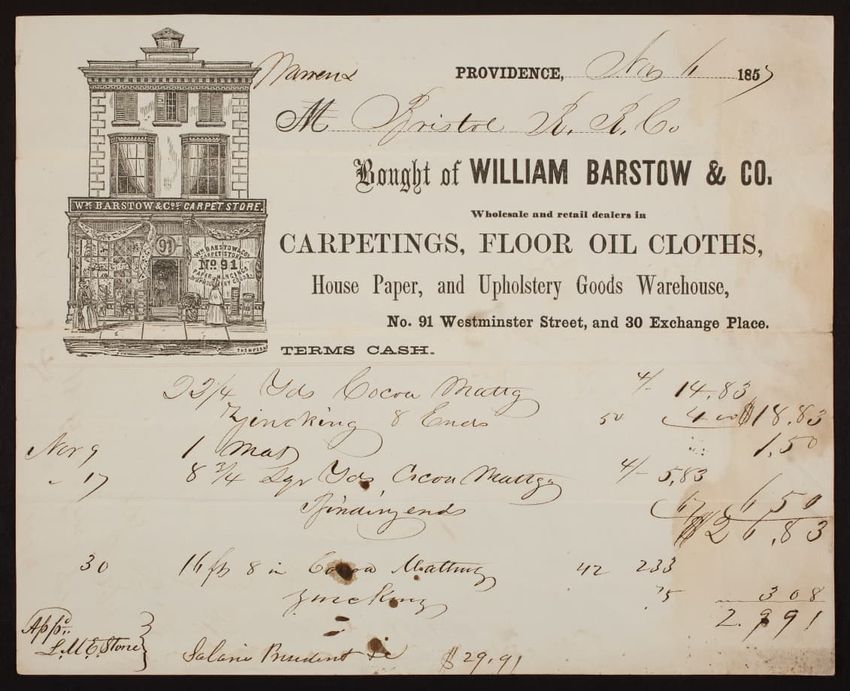 Warren &
PROVIDENCE, Nov 6 1857
M Bristol R. R. Co
Bought of WILLIAM BARSTOW & CO.
Wholesale and retail dealers in
CARPETINGS, FLOOR OIL CLOTHS,
House Paper, and Upholstery Goods Warehouse,
No. 91 Westminster Street, and 30 Exchange Place.
TERMS CASH.
WM BARSTOW & CO'S CARPET STORE.
91
WM BARSTOW & CO
No 91
PAPER HANGINGS
THOMPSON
22 1/4 Yds Cocoa Mattg 4/- 14.83
Zincking 8 Ends 50 4 00 $18.83
Nov 9 1 Mat 1.50
" 17 8 3/4 Sqr Yds Cocoa Mattg 4/- 5.83
Binding ends 67 6 50
$26.83
30 16 ft 8 in Cocoa Matting 42 233
Zincking 75 308
2.991
App'd
L.M.E. Stone
$29.91